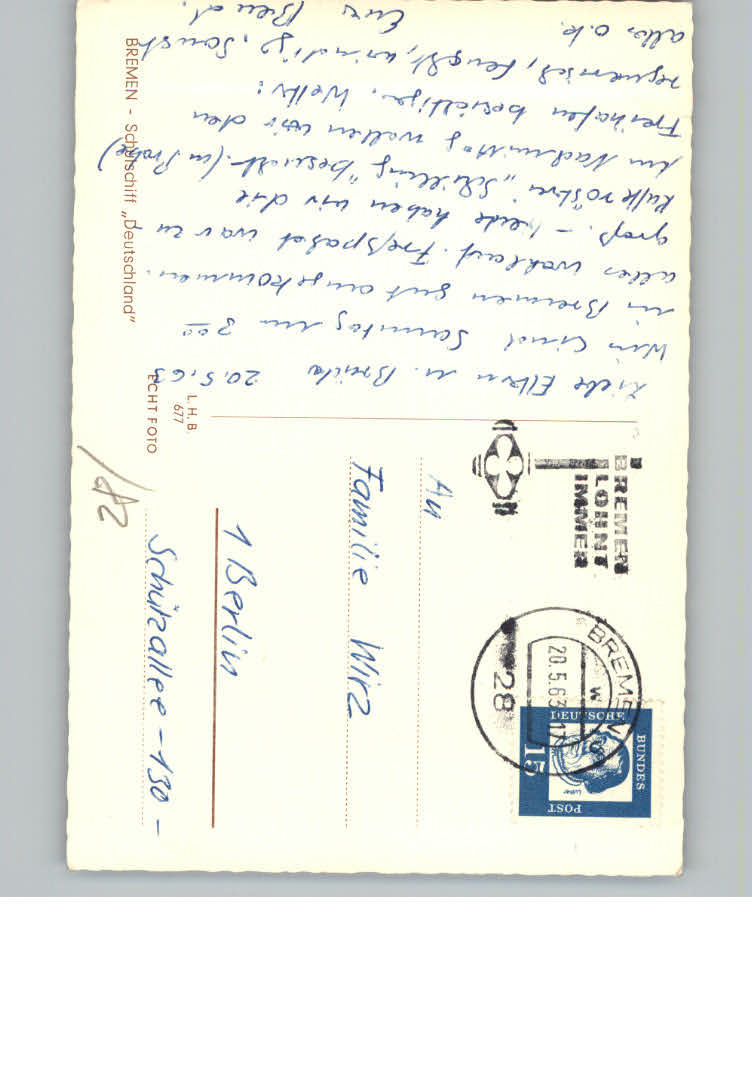 Liebe Eltern u. 20.5.63
Wir sind Samstag um 3 00
in Bremen gut angekommen.
alles wohlauf. Freßpaket war zu
groß. – heute haben wir die
Kaffeerösterei „Schilling" besucht. (m. Probe)
Am Nachmittag wollen wir den
Freihafen besichtigen. Wetter:
regnerisch, feucht, windig. Sonst
alles o.k.
Euer Bernd.
BREMEN - Schulschiff „Deutschland"
L.H.B.
677
ECHT FOTO
BREMEN
LOHNT
IMMER
BREMEN
20.5.63-17
w
28
DEUTSCHE
BUNDES
POST
15
Luther
An
Familie Wirz
1 Berlin
Schützallee - 130 -
182